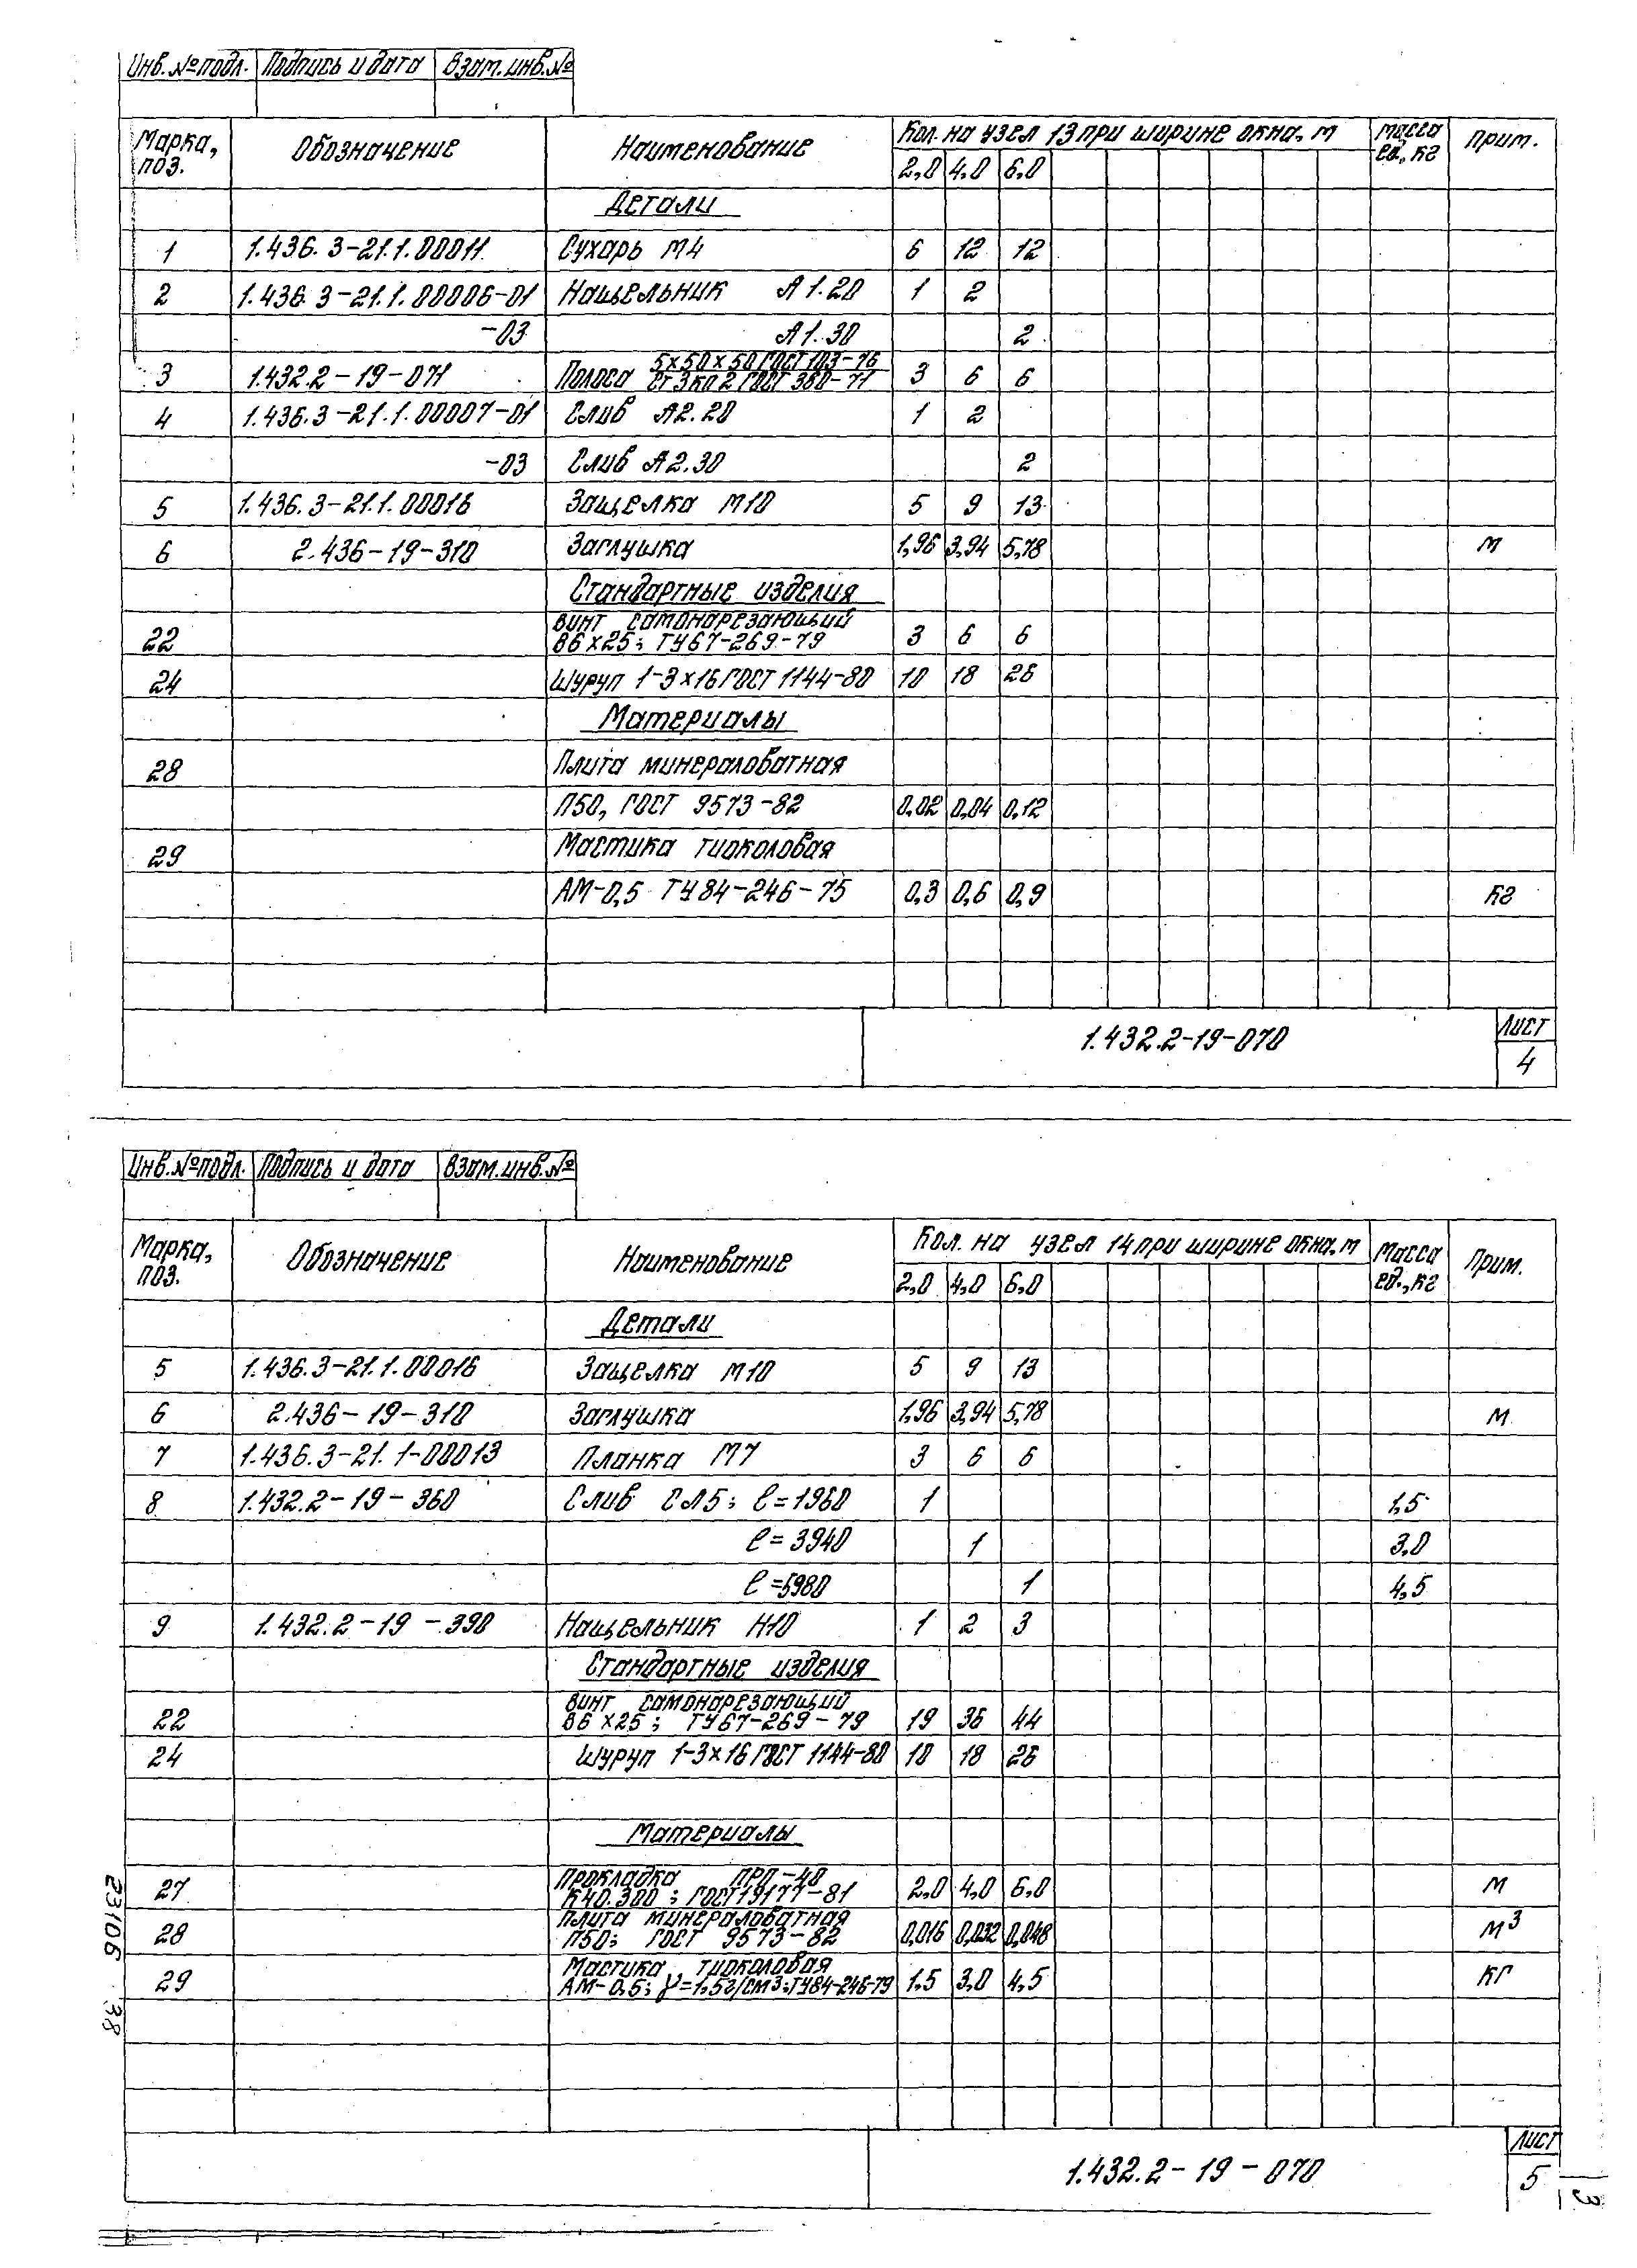 Инв.№ подл. Подпись и дата Взам.инв.№
Марка, поз. Обозначение Наименование Кол. на узел 13 при ширине окна, м Масса ед., кг Прим.
2,0 4,0 6,0
Детали
1 1.436.3-21.1.00011 Сухарь М4 6 12 12
2 1.436.3-21.1.00006-01 Нащельник А1.20 1 2
-03 А1.30 2
3 1.432.2-19-071 Полоса 5×50×50 ГОСТ 103-76 / Ст 3кп 2 ГОСТ 380-71 3 6 6
4 1.436.3-21.1.00007-01 Слив А2.20 1 2
-03 Слив А2.30 2
5 1.436.3-21.1.00016 Защелка М10 5 9 13
6 2.436-19-310 Заглушка 1,96 3,94 5,78 м
Стандартные изделия
Винт самонарезающий
22 В6×25; ТУ67-269-79 3 6 6
24 Шуруп 1-3×16 ГОСТ 1144-80 10 18 26
Материалы
28 Плита минераловатная
П50, ГОСТ 9573-82 0,02 0,04 0,12
29 Мастика тиоколовая
АМ-0,5 ТУ84-246-75 0,3 0,6 0,9 кг
1.432.2-19-070
Лист
4
Инв.№ подл. Подпись и дата Взам.инв.№
Марка, поз. Обозначение Наименование Кол. на узел 14 при ширине окна, м Масса ед., кг Прим.
2,0 4,0 6,0
Детали
5 1.436.3-21.1.00016 Защелка М10 5 9 13
6 2.436-19-310 Заглушка 1,96 3,94 5,78 м
7 1.436.3-21.1-00013 Планка М7 3 6 6
8 1.432.2-19-360 Слив СЛ5; ℓ=1960 1 1,5
ℓ=3940 1 3,0
ℓ=5980 1 4,5
9 1.432.2-19-390 Нащельник Н10 1 2 3
Стандартные изделия
Винт самонарезающий
22 В6×25; ТУ67-269-79 19 36 44
24 Шуруп 1-3×16 ГОСТ 1144-80 10 18 26
Материалы
Прокладка ПРП-40
27 К40.300; ГОСТ19177-81 2,0 4,0 6,0 м
Плита минераловатная
28 П50; ГОСТ 9573-82 0,016 0,032 0,048 м³
Мастика тиоколовая
29 АМ-0,5; γ=1,5г/см3; ТУ84-246-79 1,5 3,0 4,5 кг
1.432.2-19-070
Лист
5
23106 38